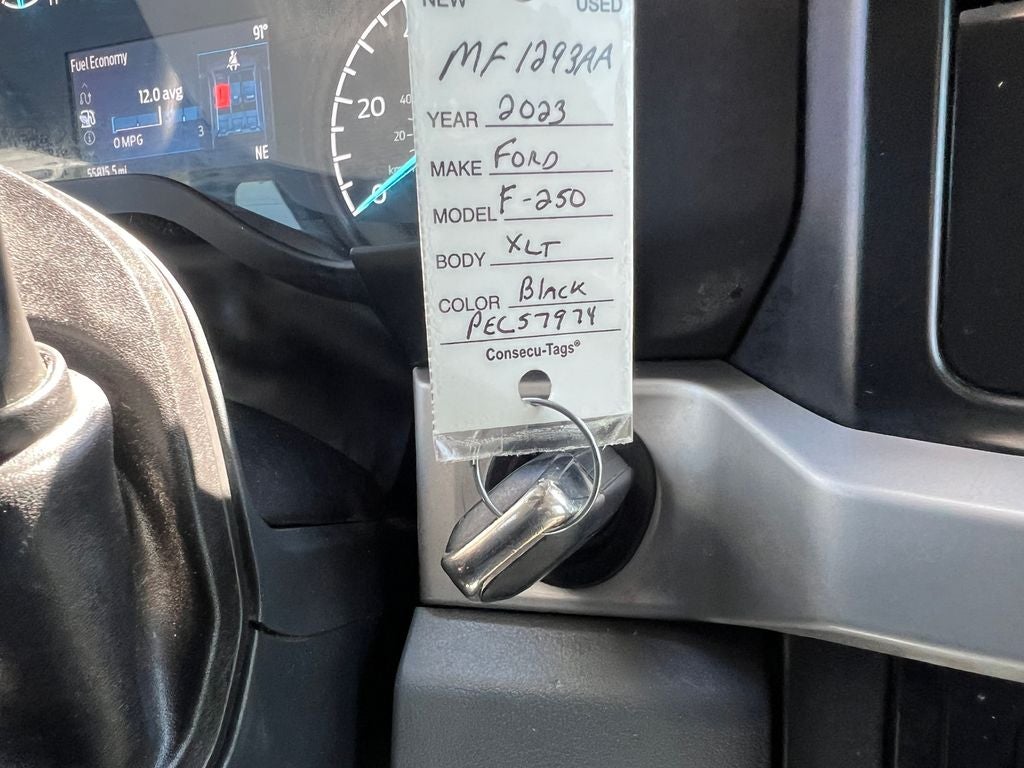 Fuel Economy
91°
12.0 avg
0 MPG
3
55815.5 mi
NE
20
40
20
0
NEW USED
MF1293AA
YEAR 2023
MAKE FORD
MODEL F-250
BODY XLT
COLOR Black
PEC57974
Consecu-Tags®